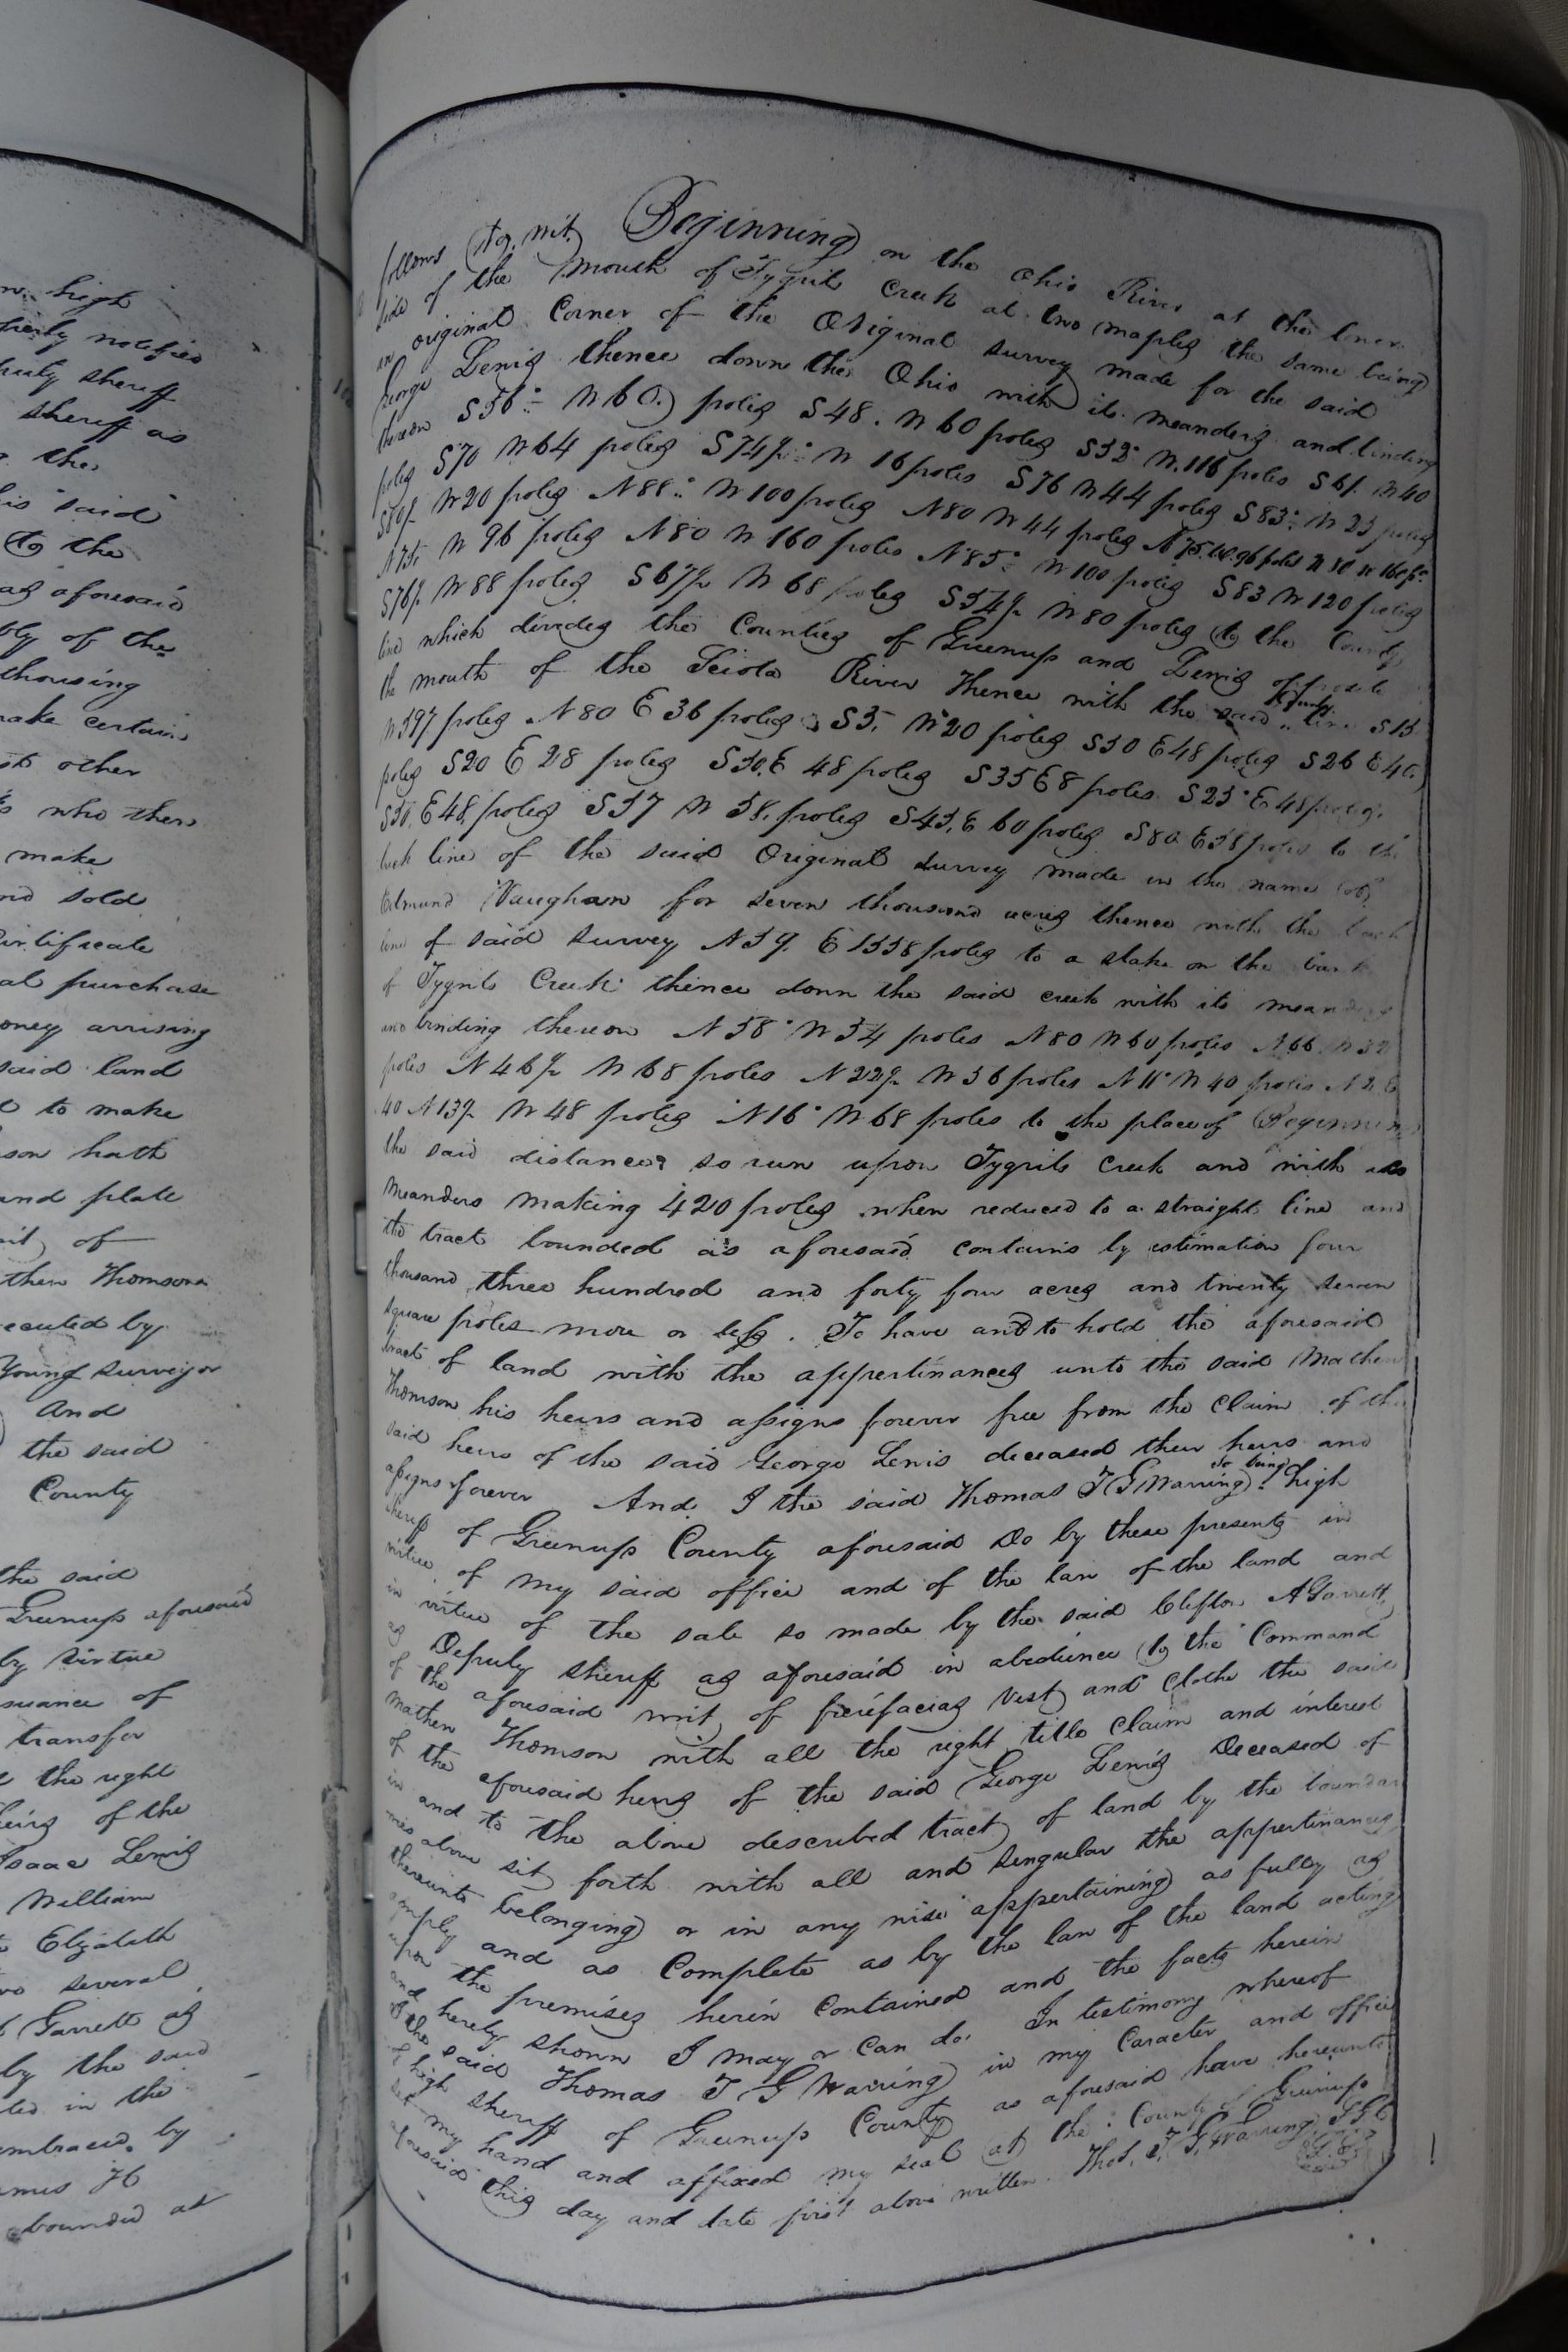 n. high
notified
sheriff
sheriff as
the
his said
to the
as aforesaid
of the
thousing
make certain
other
who then
make
and sold
Certificate
al purchase
oney arrising
said land
to make
son hath
and plate
of
then Thomson
ecuted by
Young surveyor
And
the said
County
the said
Greenup aforesaid
by virtue
suance of
transfer
the right
heirs of the
Isaac Lewis
William
Elizabeth
several
Garrett as
by the said
in the
embraced by
bounded at
follows (to, wit.) Beginning on the Ohio River at the lower
side of the mouth of Tygrits Creek at two maples the same being
an original Corner of the Original survey made for the said
George Lewis thence down the Ohio with its meanders and binding
thereon S56° W60 poles S48. W60 poles S52° W.116 poles S61. W40
poles S70 W64 poles S74½° W 16 poles S76 W44 poles S83° W 25 poles
W20 poles N88° W100 poles N80 W44 poles N75.W.96 poles N 80 W 160
N75. W 96 poles N80 W 160 poles N85° W100 poles S83 W120 poles
S76½ W88 poles S67½ W 68 poles S54½ W80 poles to the County
line which divides the Counties of Greenup and Lewis opposite
the mouth of the Sciota River Thence with the said line S15
W597 poles N80 E 36 poles S5. W20 poles S50 E48 poles S26 E40
poles S20 E 28 poles S50.E 48 poles S35 E8 poles S25° E48 poles
S50. E48. poles S57 W 58. poles S45. E 60 poles S80 E58 poles to the
back line of the said Original survey made in the name of
Edmund Vaughan for seven thousand acres thence with the back
line of said survey N59. E 1558 poles to a stake on the bank
of Tygrits Creek thence down the said creek with its meanders
and binding thereon N58° W54 poles N80 W60 poles N66 W 52
poles N46½ W68 poles N22½ W56 poles N11° W 40 poles N2 E
40 N13½ W48 poles N16° W68 poles to the place of Beginning
the said distances so run upon Tygrits creek and with its
meanders making 420 poles when reduced to a straight line and
the tract bounded as aforesaid contains by estimation four
thousand three hundred and forty four acres and twenty seven
square poles more or less. To have and to hold the aforesaid
tract of land with the appertinances unto the said Mathew
Thomson his heirs and assigns forever free from the claim of the
said heirs of the said George Lewis deceased their heirs and
assigns forever And I the said Thomas T G Warring so being high
sheriff of Greenup County aforesaid Do by these presents in
virtue of my said office and of the law of the land and
in virtue of the sale so made by the said Clefton A Garrett
as Deputy sheriff as aforesaid in abedience to the Command
of the aforesaid writ of fierifacias Vest and Clothe the said
mathew Thomson with all the right title Claim and interest
of the aforesaid heirs of the said George Lewis Deceased of
in and to the above described tract of land by the boundar
ries above sit forth with all and singular the appertinances
thereunto belonging or in any wise appertaining as fully as
amply and as Complete as by the law of the land acting
upon the premises herein Contained and the facts herein
and hereby shown I may or can do. In testimony whereof
I the said Thomas T G Warring in my Caracter and office
of high sheriff of Greenup County as aforesaid have hereunto
set my hand and affixed my seal at the County of Greenup
aforesaid this day and date first above written. Thos. T. G. Warring